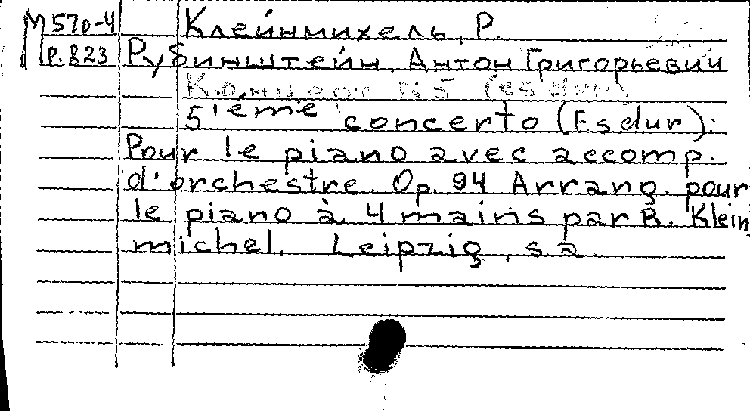 М570-4 Клейнмихель, Р.
Р.823 Рубинштейн, Антон Григорьевич
5'ième concerto (Es dur).
Pour le piano avec accomp.
d'orchestre. Op. 94 Arrang. pour
le piano à 4 mains par R. Klein
michel. Leipzig, s a